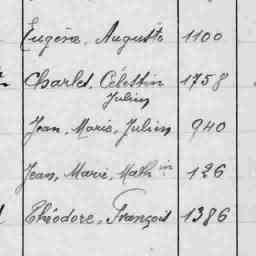 Eugène, Auguste 1100
Charles, Célestin 1758
Julien
Jean, Marie, Julien 940
Jean, Marie, Math in 126
Théodore, François 1386